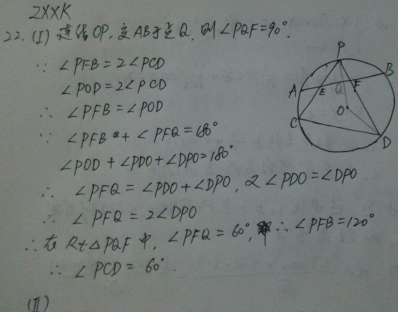 ZXXK
22. (I) 连结OP，交AB于点Q，则∠PQF=90°.
∵ ∠PFB=2∠PCD
∠POD=2∠PCD
∴ ∠PFB=∠POD
∵ ∠PFB+∠PFQ=180°
∠POD+∠PDO+∠DPO=180°
∴ ∠PFQ=∠PDO+∠DPO, 又∠PDO=∠DPO
∴ ∠PFQ=2∠DPO
∴ 在Rt△PQF中, ∠PFQ=60°, ∴∠PFB=120°
∴ ∠PCD=60°.
(II)
P
B
A
E
Q
F
O
C
D